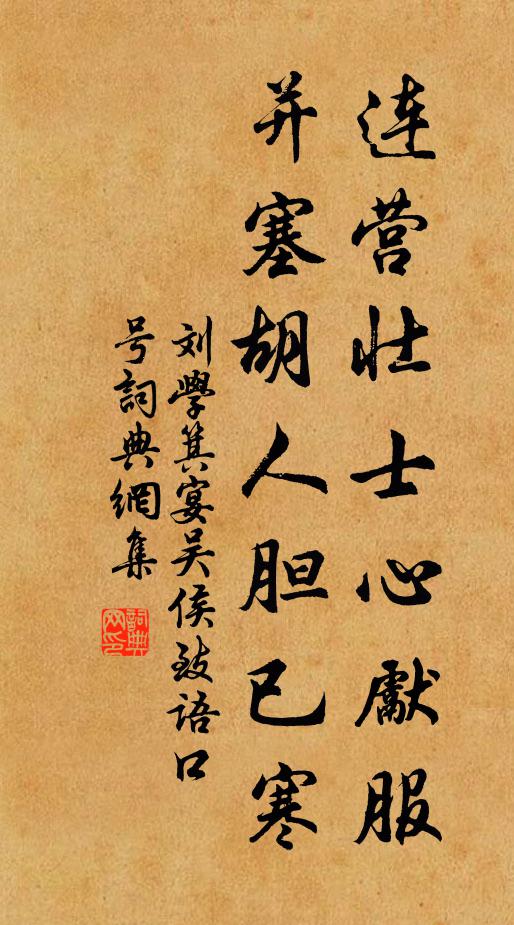 連营壮士心獻服
并塞胡人胆已寒
刘學箕宴吴侯致語口
号詞典網集
詞典
网印